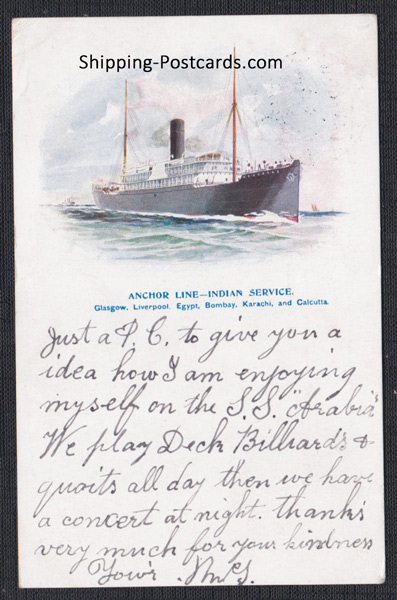 Shipping-Postcards.com
ANCHOR LINE—INDIAN SERVICE.
Glasgow, Liverpool, Egypt, Bombay, Karachi, and Calcutta.
Just a P.C. to give you a
idea how I am enjoying
myself on the S.S. "Arabia"
We play Deck Billiards &
quoits all day then we have
a concert at night. thanks
very much for your kindness
Your's